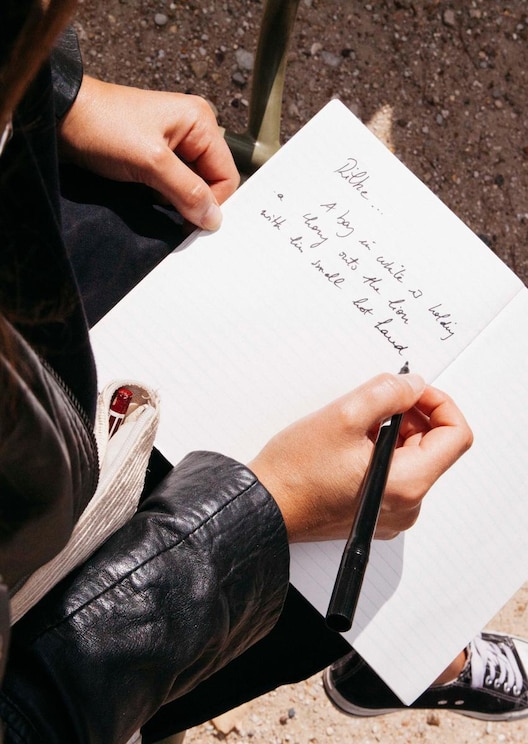 Rilke...
A boy in white is holding
a thong onto the lion
with his small hot hand